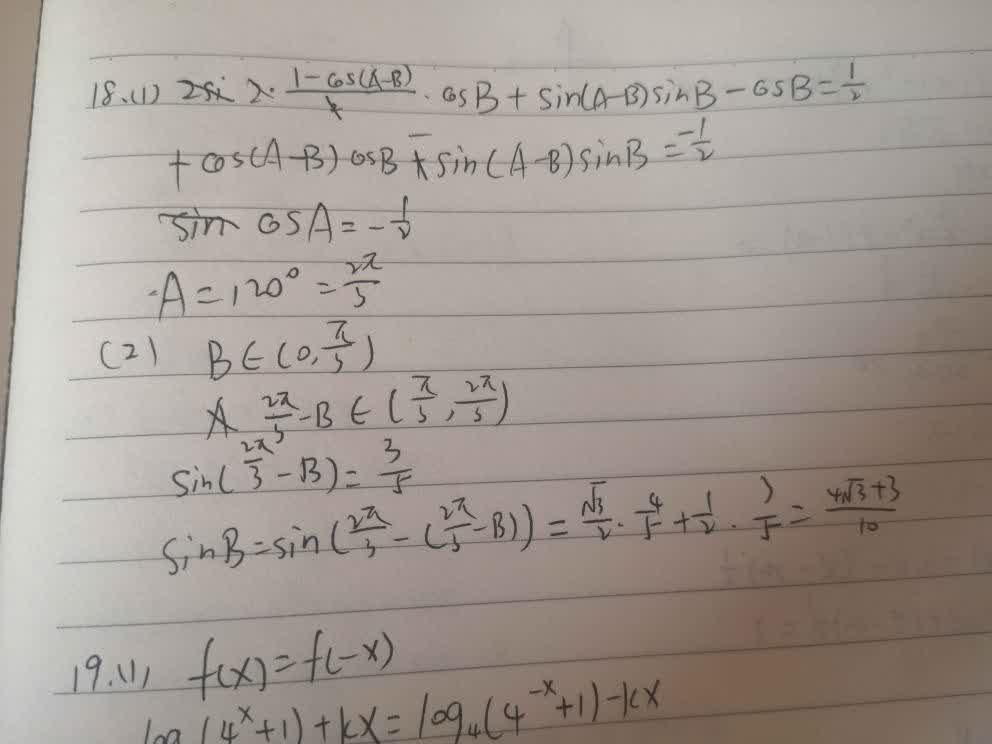 18.(1) 2·(1-cos(A-B))/2·cosB+sin(A-B)sinB-cosB=1/2
+cos(A-B)cosB-sin(A-B)sinB=-1/2
cosA=-1/2
A=120°=2π/3
(2) B∈(0,π/3)
2π/3-B∈(π/3,2π/3)
sin(2π/3-B)=3/5
sinB=sin(2π/3-(2π/3-B))=√3/2·4/5+1/2·3/5=(4√3+3)/10
19.(1) f(x)=f(-x)
log (4^x+1)+kx=log₄(4^-x+1)-kx